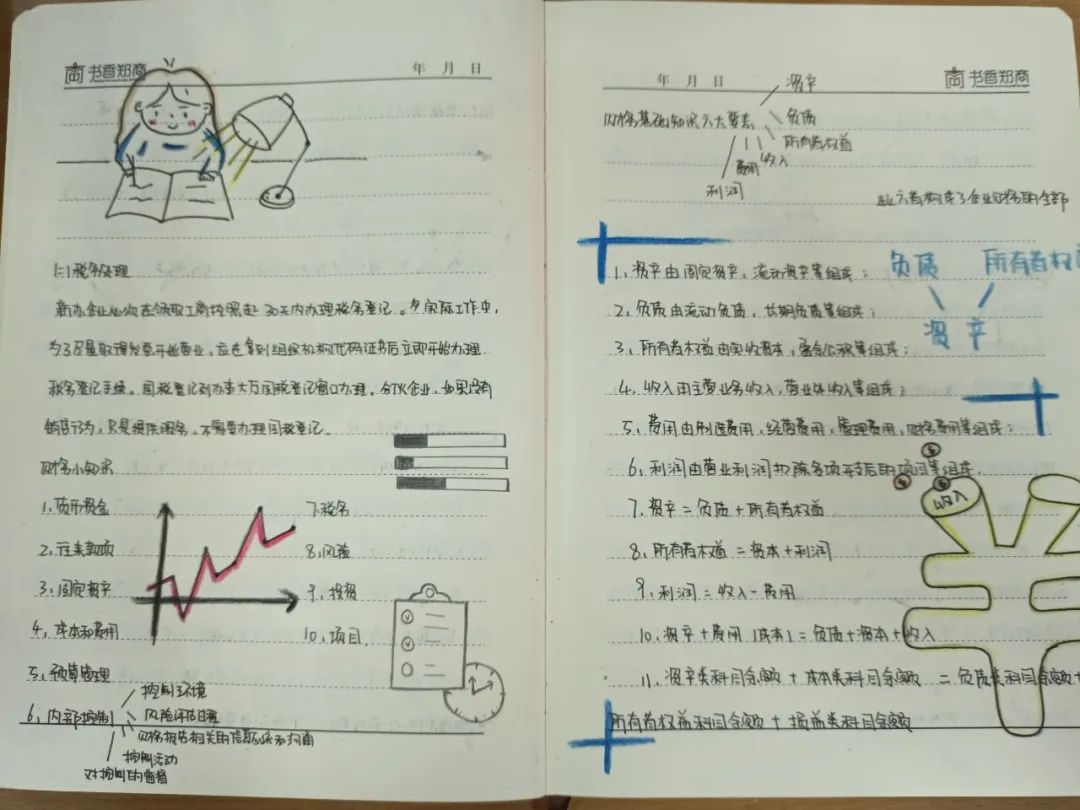 书香郑商
年 月 日
(三)税务处理
新办企业必须在领取工商执照起30天内办理税务登记。在实际工作中,
为了尽量取得发票开始营业,应在拿到组织机构代码证书后立即开始办理
税务登记手续。国税登记到办事大厅国税登记窗口办理。合伙企业,如果没有
销售行为,只是提供服务,不需要办理国税登记。
财务小知识
1,货币资金
2,往来款项
3,固定资产
4,成本和费用
5,预算管理
6,内部控制
控制环境
风险评估过程
财务报告相关的信息系统和沟通
控制活动
对控制的监督
7,税务
8,风险
9,投资
10,项目
年 月 日
书香郑商
财务基础知识六大要素
资产
负债
所有者权益
收入
费用
利润
此六者构成了企业财务的全部
1,资产由固定资产,流动资产等组成;
2,负债由流动负债,长期负债等组成;
3,所有者权益由实收资本,盈余公积等组成;
4,收入由主营业务收入,营业外收入等组成;
5,费用由制造费用,经营费用,管理费用,财务费用等组成;
6,利润由营业利润扣除各项开支后的项目等组成.
7,资产=负债+所有者权益
8,所有者权益=资本+利润
9,利润=收入-费用
10,资产+费用(成本)=负债+资本+收入
11,资产类科目余额+成本类科目余额=负债类科目余额+
所有者权益科目余额+损益类科目余额
负债 所有者权益
资产
收入